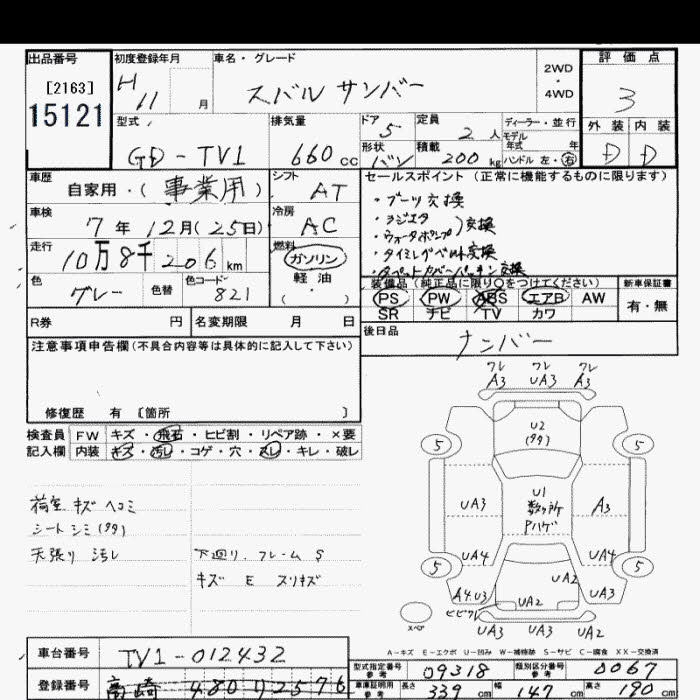 出品番号 初度登録年月 車名・グレード 2WD・4WD 評価点
[2163]
15121
H 11 月 スバル サンバー 3
型式 排気量 ドア 5 定員 2人 ディーラー・並行
モデル年式 年 外装 内装
GD-TV1 660cc 形状 バン 積載 200kg ハンドル 左・右 D D
車歴 自家用・(事業用) シフト AT セールスポイント (正常に機能するものに限ります)
車検 7年12月(25日) 冷房 AC
・ブーツ交換
・ラジエタ
・ウォータポンプ)交換
・タイミングベルト交換
・タペットカバーパッキン交換
走行 10万8千206km 燃料 ガソリン
軽油
(・)
色 グレー 色替 色コード 821
装備品 (純正品に限り○をつけてください) 新車保証書
PS PW ABS エアB AW 有・無
SR ナビ TV カワ
R券 円 名変期限 月 日 後日品 ナンバー
注意事項申告欄(不具合内容等は具体的に記入して下さい)
修復歴 有 [箇所 ]
検査員 FW キズ・飛石・ヒビ割・リペア跡・×要
記入欄 内装 キズ・汚れ・コゲ・穴・スレ・キレ・破レ
荷室 キズ ヘコミ
シート シミ(タタ)
天張り 汚レ
下廻り、フレーム S
キズ E スリキズ
フレ フレ フレ
A3 UA3 A3
U2
(タタ)
5 5
UA3 U1 A3
数ヶ所
Pハゲ
UA4 UA4
5 5
A4.U3 UA2 UA3
ヒビワレ UA2
スペア
UA3 UA3 UA2
A−キズ E−エクボ U−凹み W−補修跡 S−サビ C−腐食 XX−交換済
車台番号 TV1-012432
型式指定番号 参考 09318 類別区分番号 参考 0067
登録番号 高崎 480り2576
車庫証明用 参考 長さ 339cm 幅 147cm 高さ 190cm